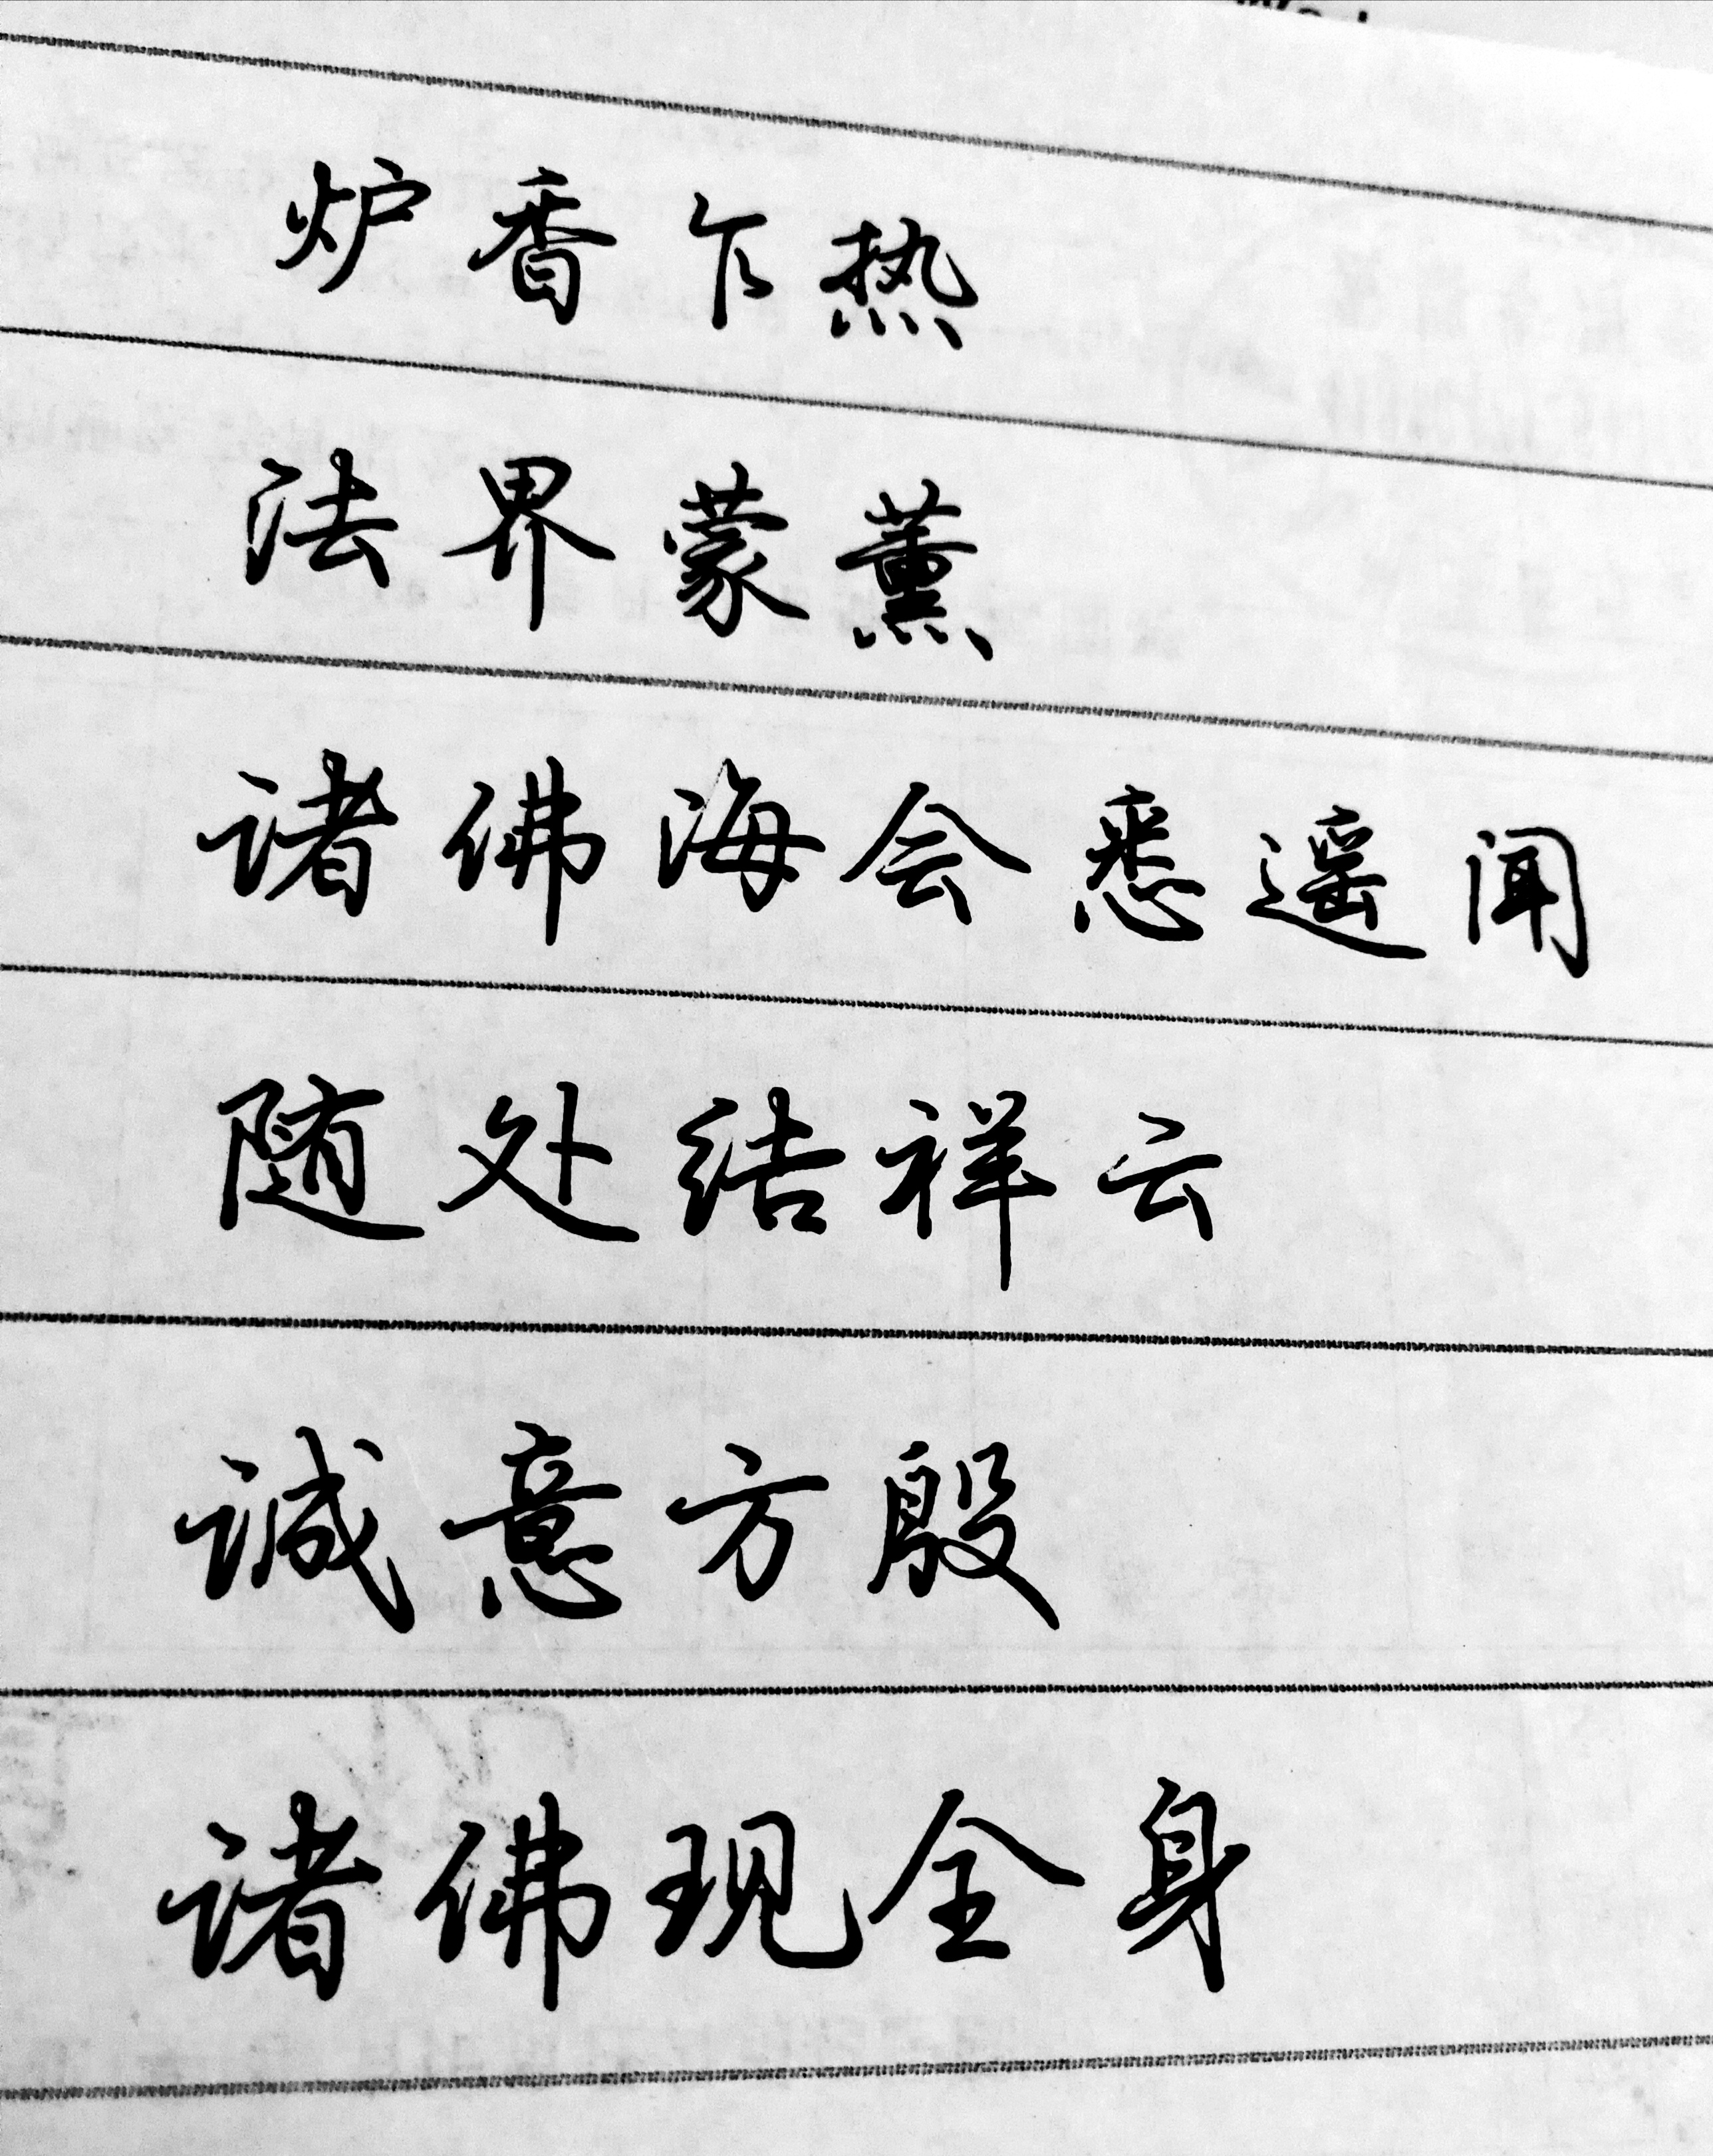 炉香乍热
法界蒙薰
诸佛海会悉遥闻
随处结祥云
诚意方殷
诸佛现全身